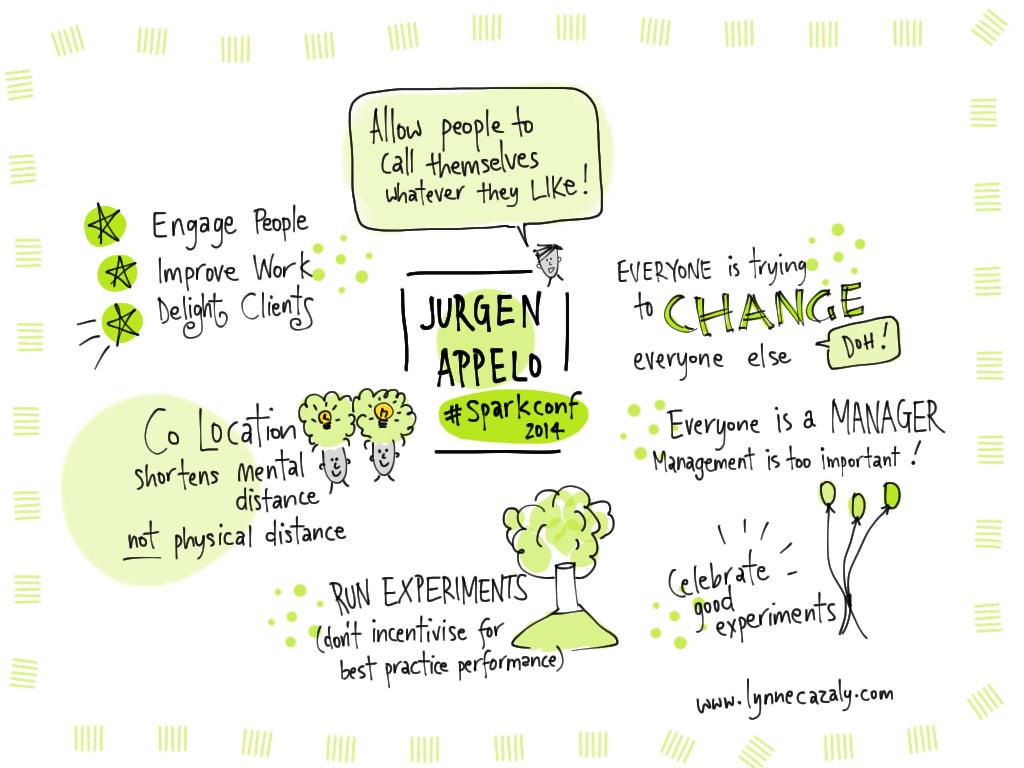 Allow people to
call themselves
whatever they LIKE!
Engage People
Improve Work
Delight Clients
JURGEN
APPELO
#Sparkconf
2014
EVERYONE is trying
to CHANGE
everyone else
DOH!
Co Location
shortens mental
distance
not physical distance
Everyone is a MANAGER
Management is too important!
RUN EXPERIMENTS
(don't incentivise for
best practice performance)
Celebrate
good
experiments
www.lynnecazaly.com